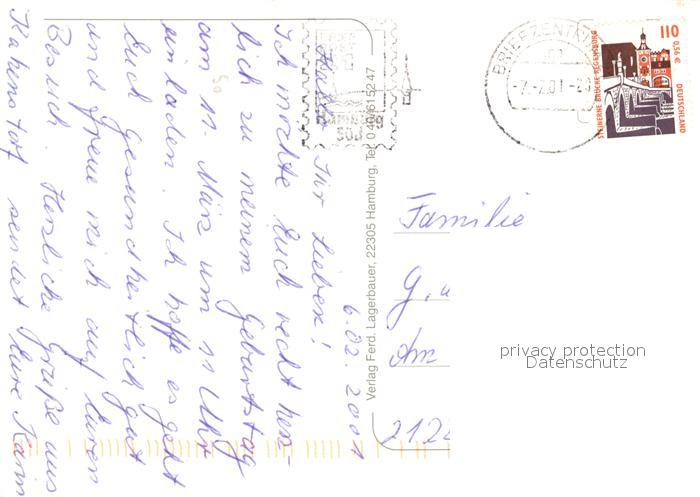 6.02.2001
Hallo Ihr Lieben!
Ich möchte Euch recht herz-
lich zu meinem Geburtstag
am 11. März um 11 Uhr
einladen. Ich hoffe es geht
Euch gesundheitlich gut
und freue mich auf Euren
Besuch. Herzliche Grüße aus
sendet Eure Karin
Verlag Ferd. Lagerbauer, 22305 Hamburg, Tel. 040/615247
BRIEFZENTRUM
-7.-2.01-20
110
0,56 €
DEUTSCHLAND
STEINERNE BRÜCKE REGENSBURG
Familie
G. u
Am
2122
privacy protection
Datenschutz